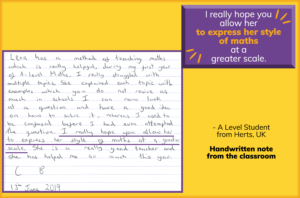 I really hope you
allow her
to express her style
of maths
at a
greater scale.
Lena has a method of teaching maths
which is really helpful, during my first year
of A-level Maths, I really struggled with
multiple topics. She explained each topic with
examples which you do not receive as
much in schools. I can now look
at a question and have a good idea
on how to solve it, whereas I used to
be confused before I had even attempted
the question. I really hope you allow her
to express her style of maths at a greater
scale. She is a really good teacher and
she has helped me so much this year.
13th June 2019
- A Level Student
from Herts, UK
Handwritten note
from the classroom